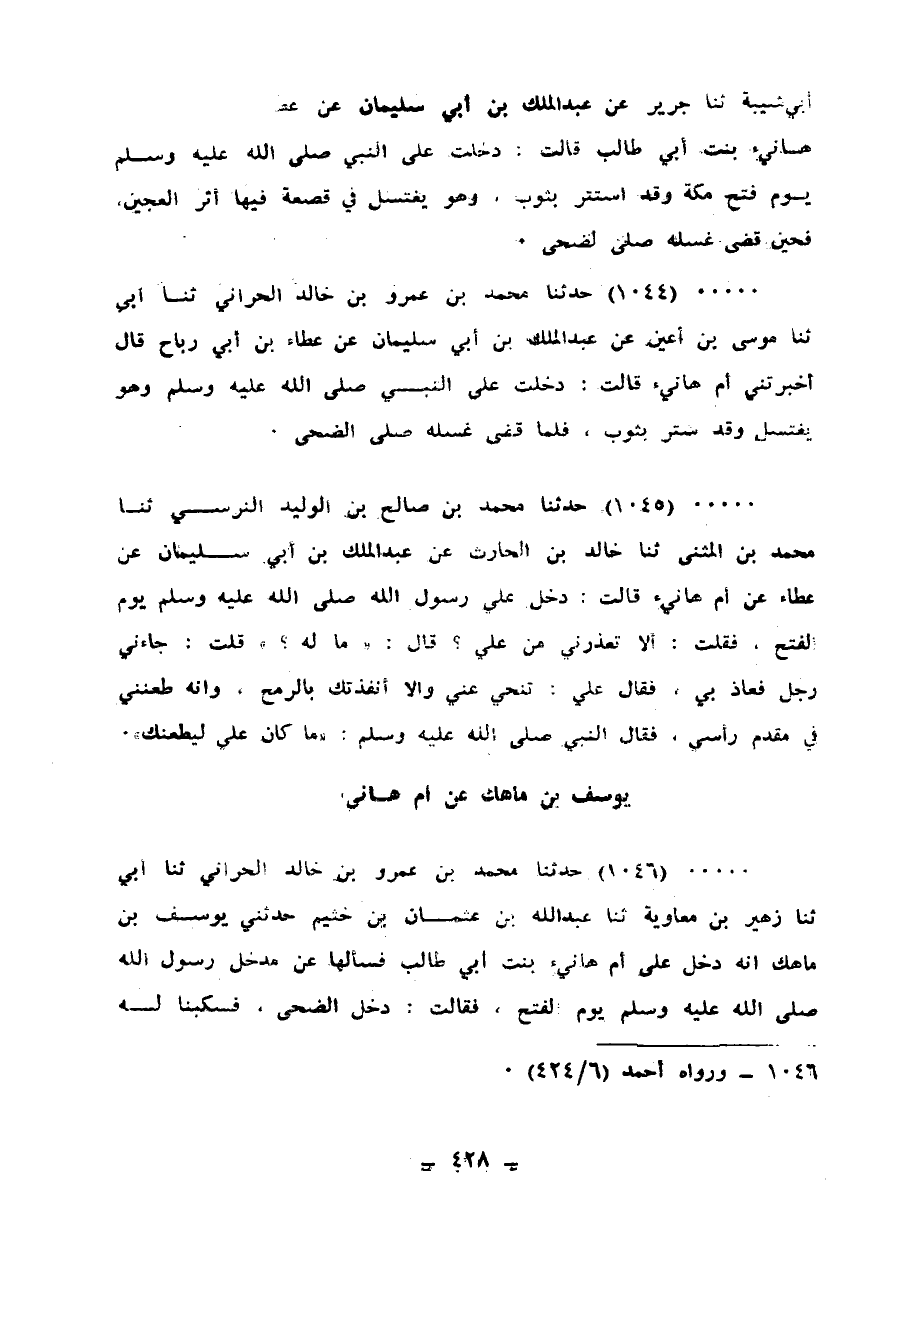 أبي شيبة ثنا جرير عن عبدالملك بن أبي سليمان عن عط
هانيء بنت أبي طالب قالت : دخلت على النبي صلى الله عليه وسلم
يوم فتح مكة وقد استتر بثوب ، وهو يغتسل في قصعة فيها أثر العجين،
فحين قضى غسله صلى لضحى ٠
٠٠٠٠٠ (١٠٤٤) حدثنا محمد بن عمرو بن خالد الحراني ثنا أبي
ثنا موسى بن أعين عن عبدالملك بن أبي سليمان عن عطاء بن أبي رباح قال
أخبرتني أم هانيء قالت : دخلت على النبي صلى الله عليه وسلم وهو
يغتسل وقد ستر بثوب ، فلما قضى غسله صلى الضحى ٠
٠٠٠٠٠ (١٠٤٥) حدثنا محمد بن صالح بن الوليد النرسي ثنا
محمد بن المثنى ثنا خالد بن الحارث عن عبدالملك بن أبي سليمان عن
عطاء عن أم هانيء قالت : دخل علي رسول الله صلى الله عليه وسلم يوم
الفتح ، فقلت : ألا تعذرني من علي ؟ قال : « ما له ؟ » قلت : جاءني
رجل فعاذ بي ، فقال علي : تنحي عني والا أنفذتك بالرمح ، وانه طعنني
في مقدم رأسي ، فقال النبي صلى الله عليه وسلم : «ما كان علي ليطعنك» ٠
يوسف بن ماهك عن أم هانيء
٠٠٠٠٠ (١٠٤٦) حدثنا محمد بن عمرو بن خالد الحراني ثنا أبي
ثنا زهير بن معاوية ثنا عبدالله بن عثمان بن خثيم حدثني يوسف بن
ماهك انه دخل على أم هانيء بنت أبي طالب فسألها عن مدخل رسول الله
صلى الله عليه وسلم يوم الفتح ، فقالت : دخل الضحى ، فسكبنا له
١٠٤٦ – ورواه أحمد (٤٢٤/٦) ٠
– ٤٢٨ –